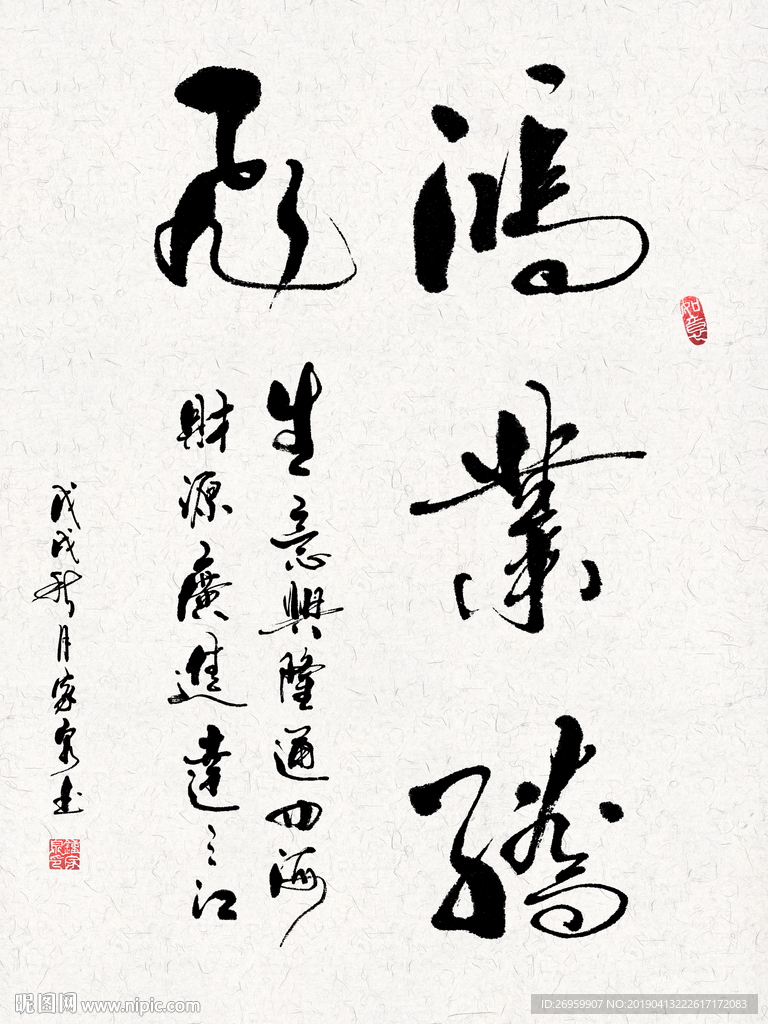 鴻業驕
飛
如意
生意興隆通四海
財源廣進達三江
戊戌秋月家泉書
鍾家泉印
昵图网 www.nipic.com
ID:26959907 NO:20190413222617172083